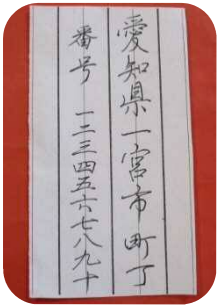 愛知県一宮市町丁
番号一二三四五六七八九十